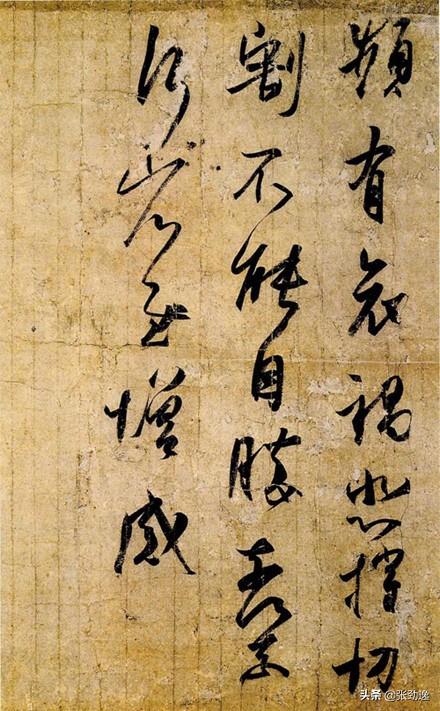 頻有哀禍悲摧切
割不能自勝奈何奈
何省慰增感
头条 @张劲逸